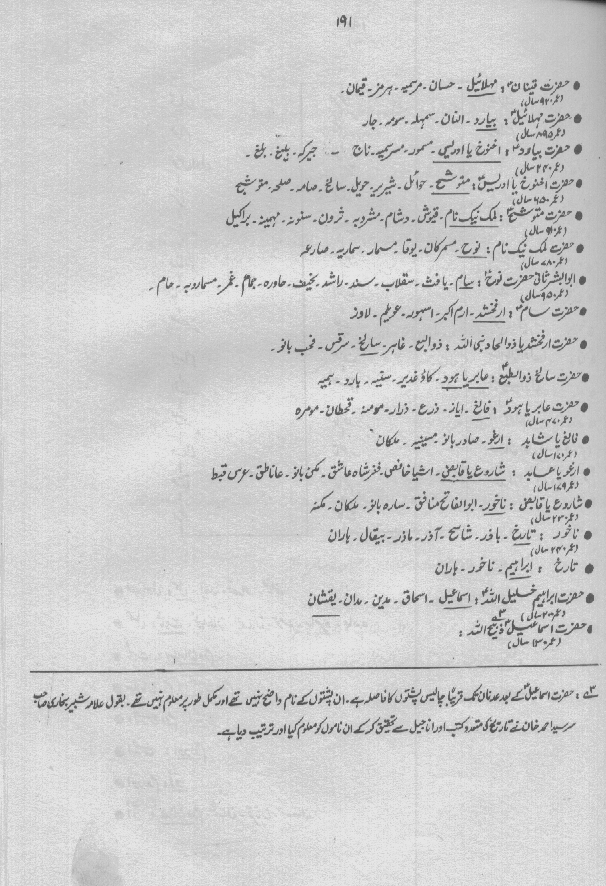 ۱۹۱
● حضرت قینانؑ : مہلائیل - حسان - مرسمیہ - ہرمز - قیمان۔
(عمر ۹۲۰ سال)
● حضرت مہلائیلؑ : بیارد - النان - سمہلہ - سومہ - جار
(عمر ۸۹۵ سال)
● حضرت بیاردؑ : اخنوخ یا ادریس - مسمور - مسرسمیہ - ناج - جیرکہ - بلیغ - بلخ -
(عمر ۲۴۰ سال)
● حضرت اخنوخ یا ادریسؑ : متوشلخ - حوائل - شیریر - حویل - سالخ - صامہ - صلحہ - متوشیح
(عمر ۶۵۰ سال)
● حضرت متوشلخؑ : لمک نیک نام - قینوش - وشام - مشروبہ - ثرون - سنونہ - مہمینہ - براکیل
● حضرت لمک نیک نام : نوح - مسمرکان - یوقا - مسمار - سماریہ - صارعہ
(عمر ۷۸۰ سال)
● ابوالبشر ثانی حضرت نوحؑ : سام - یافث - سقلاب - سند - راشد - نحیف - حاورہ - عمر - مسماروبہ - حام -
(عمر ۹۵۰ سال)
● حضرت سامؑ : ارفخشد - ارم اکبر - اسہود - عویلم - لاوز
● حضرت ارفخشد یا ذوالحاد نبی اللہ : ذوالبیع - غابر - سالخ - سرقس - فحب بانو -
● حضرت سالخ ذوالبیع : عابر یا ہود - کاؤ غدیر - ستیہ - بارد - ہمیہ
● حضرت عابر یا ہودؑ : فالغ - ایاز - ذرع - ذرار - مومنہ - قحطان - مومرہ
(عمر ۴۷۰ سال)
● فالغ یا شابد : ارغو - صادر بانو - مسینیہ - ملکان
(عمر ۱۷۰ سال)
● ارغو یا عابد : شاروع یا قابعی - اشیا خانعی - فغر شاہ عاشق - مکنی بانو - عاناطق - عرس قبط
(عمر ۱۷۹ سال)
● شاروع یا قابعی : ناخور - ابوالفاتح منافق - سارہ بانو - ملکان - مکنہ
(عمر ۲۳۰ سال)
● ناخور : تارخ - باذر - شاسح - آذر - ماذر - بیقال - ہاران
(عمر ۲۴۰ سال)
● تارخ : ابراہیم - ناخور - ہاران
● حضرت ابراہیم خلیل اللہؑ : اسماعیل - اسحاق - مدین - مدان - یقشان
(عمر ۲۰۰ سال)
● حضرت اسماعیلؑ ذبیح اللہ : ۳؎
(عمر ۱۳۰ سال)
۳؎ : حضرت اسماعیلؑ کے بعد عدنان تک قریباً چالیس پشتوں کا فاصلہ ہے۔ ان پشتوں کے نام واضح نہیں تھے اور مکمل طور پر معلوم نہیں تھے۔ بقول علامہ شبیر بخاری صاحب
سرسید احمد خان نے تاریخ کی متعدد کتب اور اناجیل سے تحقیق کر کے ان ناموں کو معلوم کیا اور ترتیب دیا ہے۔